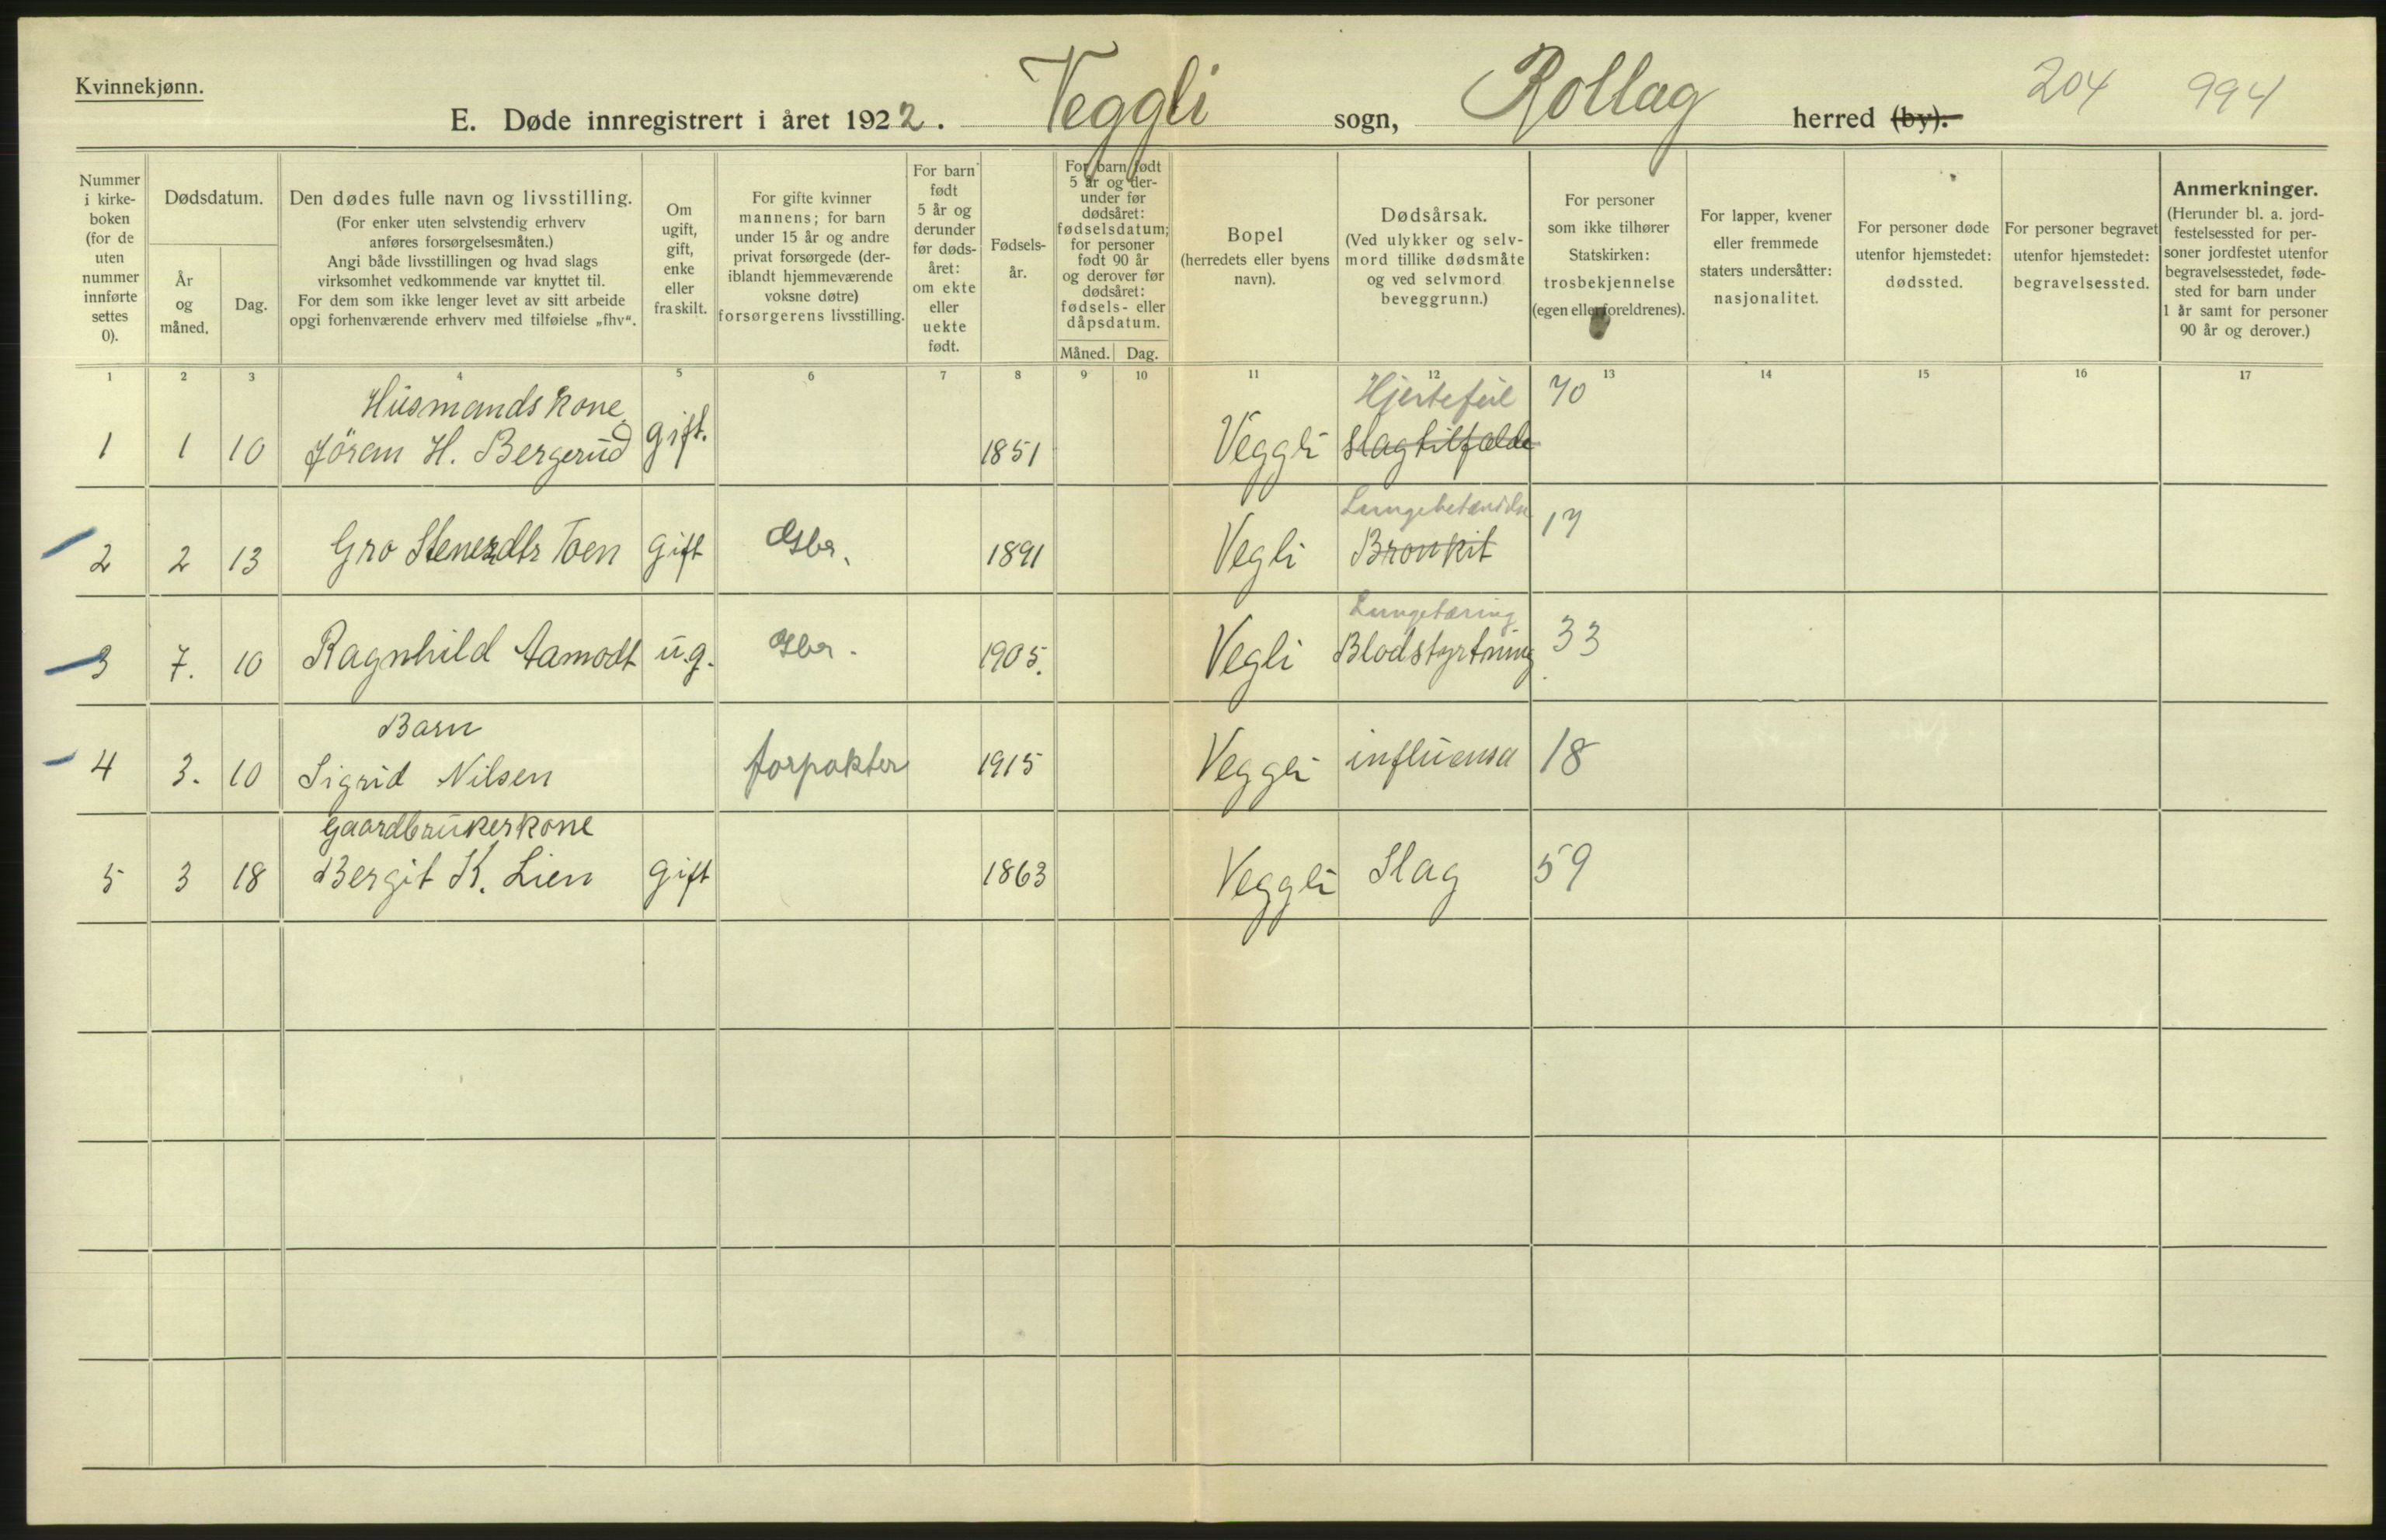 Kvinnekjønn.
E. Døde innregistrert i året 1922. Veggli sogn, Rollag herred (by).
204 994
Nummer i kirke-boken (for de uten nummer innførte settes 0).
Dødsdatum.
År og måned.
Dag.
Den dødes fulle navn og livsstilling.
(For enker uten selvstendig erhverv anføres forsørgelsesmåten.)
Angi både livsstillingen og hvad slags virksomhet vedkommende var knyttet til.
For dem som ikke lenger levet av sitt arbeide opgi forhenværende erhverv med tilføielse „fhv“.
Om ugift, gift, enke eller fraskilt.
For gifte kvinner mannens; for barn under 15 år og andre privat forsørgede (der-iblandt hjemmeværende voksne døtre) forsørgerens livsstilling.
For barn født 5 år og derunder før døds-året: om ekte eller uekte født.
Fødsels-år.
For barn født 5 år og der-under før dødsåret: fødselsdatum; for personer født 90 år og derover før dødsåret: fødsels- eller dåpsdatum.
Måned. Dag.
Bopel (herredets eller byens navn).
Dødsårsak.
(Ved ulykker og selv-mord tillike dødsmåte og ved selvmord beveggrunn.)
For personer som ikke tilhører Statskirken: trosbekjennelse (egen eller foreldrenes).
For lapper, kvener eller fremmede staters undersåtter: nasjonalitet.
For personer døde utenfor hjemstedet: dødssted.
For personer begravet utenfor hjemstedet: begravelsessted.
Anmerkninger.
(Herunder bl. a. jord-festelsessted for per-soner jordfestet utenfor begravelsesstedet, føde-sted for barn under 1 år samt for personer 90 år og derover.)
1 2 3 4 5 6 7 8 9 10 11 12 13 14 15 16 17
Husmandskone Hjertefeil 70
1 1 10 Jöran H. Bergerud gift. 1851 Veggli Slagtilfælde
Lungebetændelse 17
2 2 13 Gro Stenersdtr Toen Gift Gbr. 1891 Vegli Bronkit
Lungetæring 33
3 7. 10 Ragnhild Aamodt u.g. Gbr. 1905. Vegli Blodstyrtning
Barn
4 3. 10 Sigrid Nilsen forpakter 1915 Veggli influensa 18
Gaardbrukerkone
5 3 18 Bergit K. Lien gift 1863 Veggli Slag 59